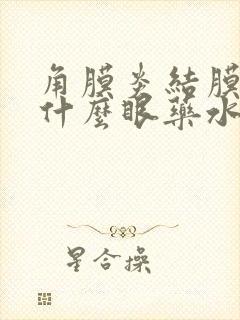 角膜炎結膜
什麼眼藥水
星合操